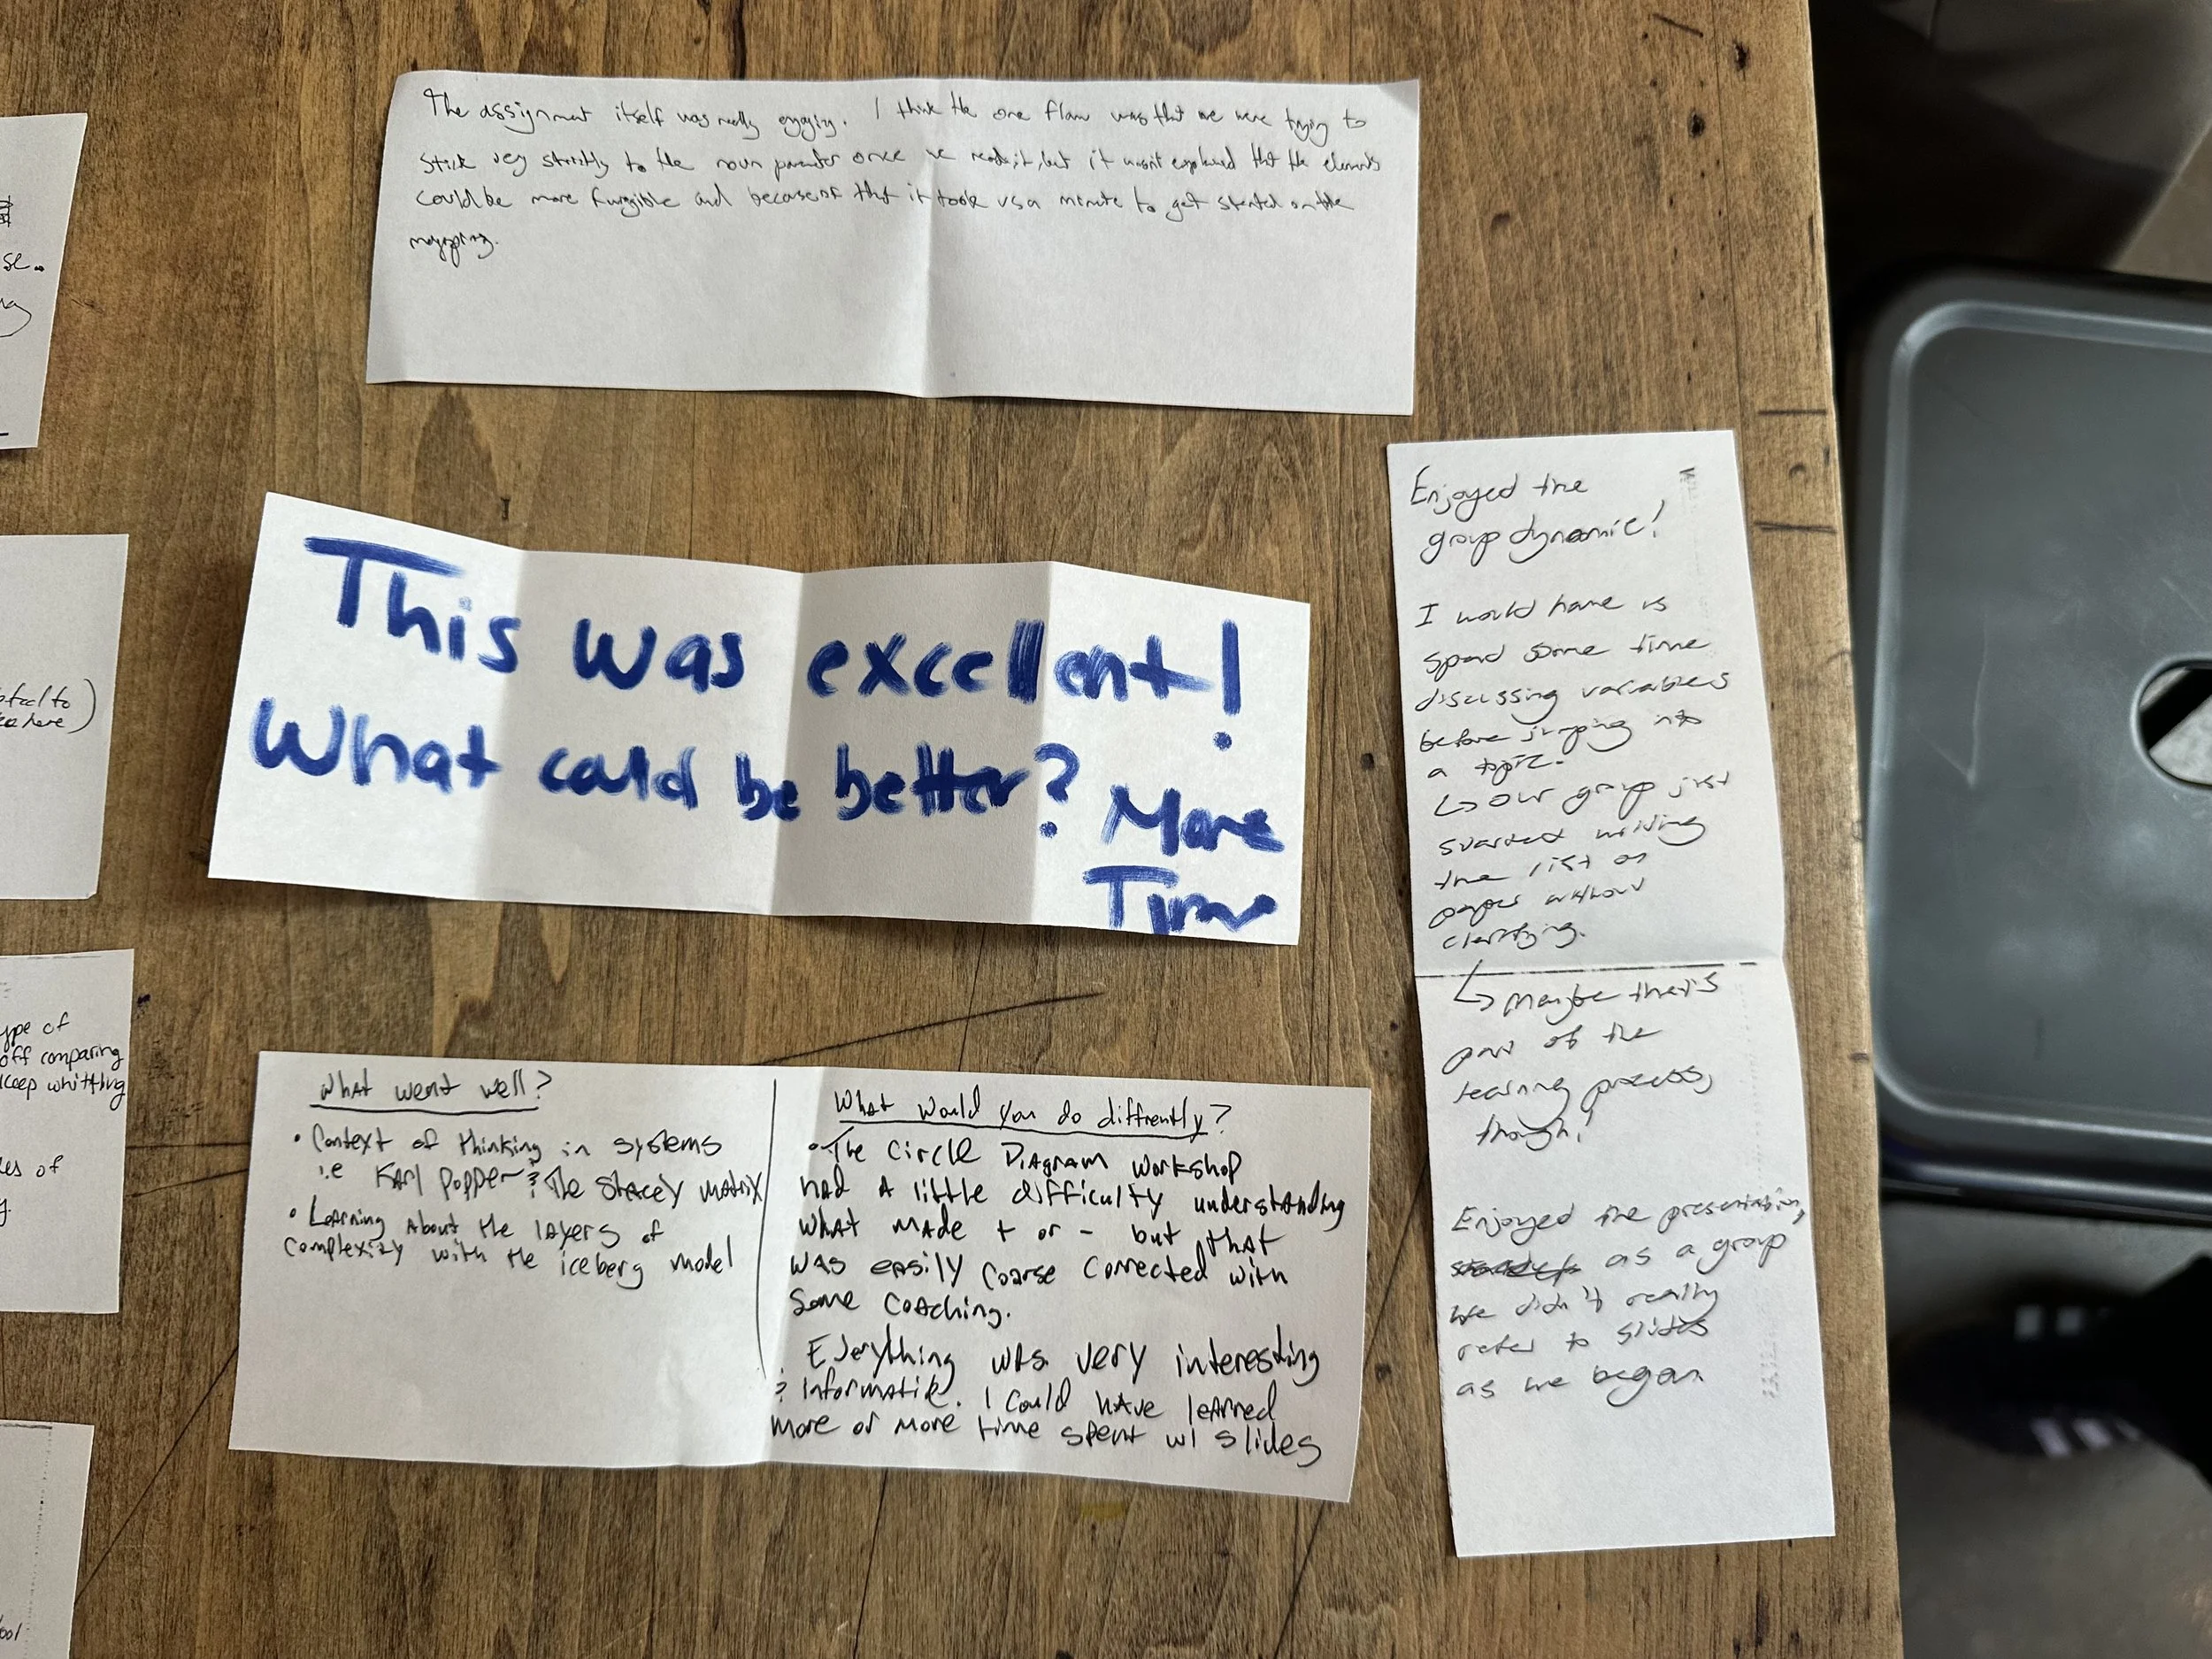 The assignment itself was really engaging. I think the one flaw was that we were trying to
stick very strictly to the noun once we read it, but it wasn't explained that the elements
could be more fungible and because of that it took us a minute to get started on the
mapping.
This was excellent!
What could be better? More
Time
Enjoyed the
group dynamic!
I would have
spend some time
discussing variables
before jumping into
a topic.
↳ Our group just
started writing
the list on
paper without
clarifying.
↳ Maybe that's
part of the
learning process,
though!
Enjoyed the presentation,
as a group
we didn't really
refer to slides
as we began
What went well?
• Context of thinking in systems
i.e Karl Popper & The Stacey Matrix
• Learning About the layers of
complexity with the iceberg model
What would you do diffrently?
• The Circle Diagram workshop
had a little difficulty understanding
what made + or - but that
was easily Coarse Corrected with
some coaching.
Everything was very interesting
& Informative. I Could have learned
more or more time spent w/ slides
se.
tool to
here)
ype of
off comparing
keep whittling
es of
y.
ool